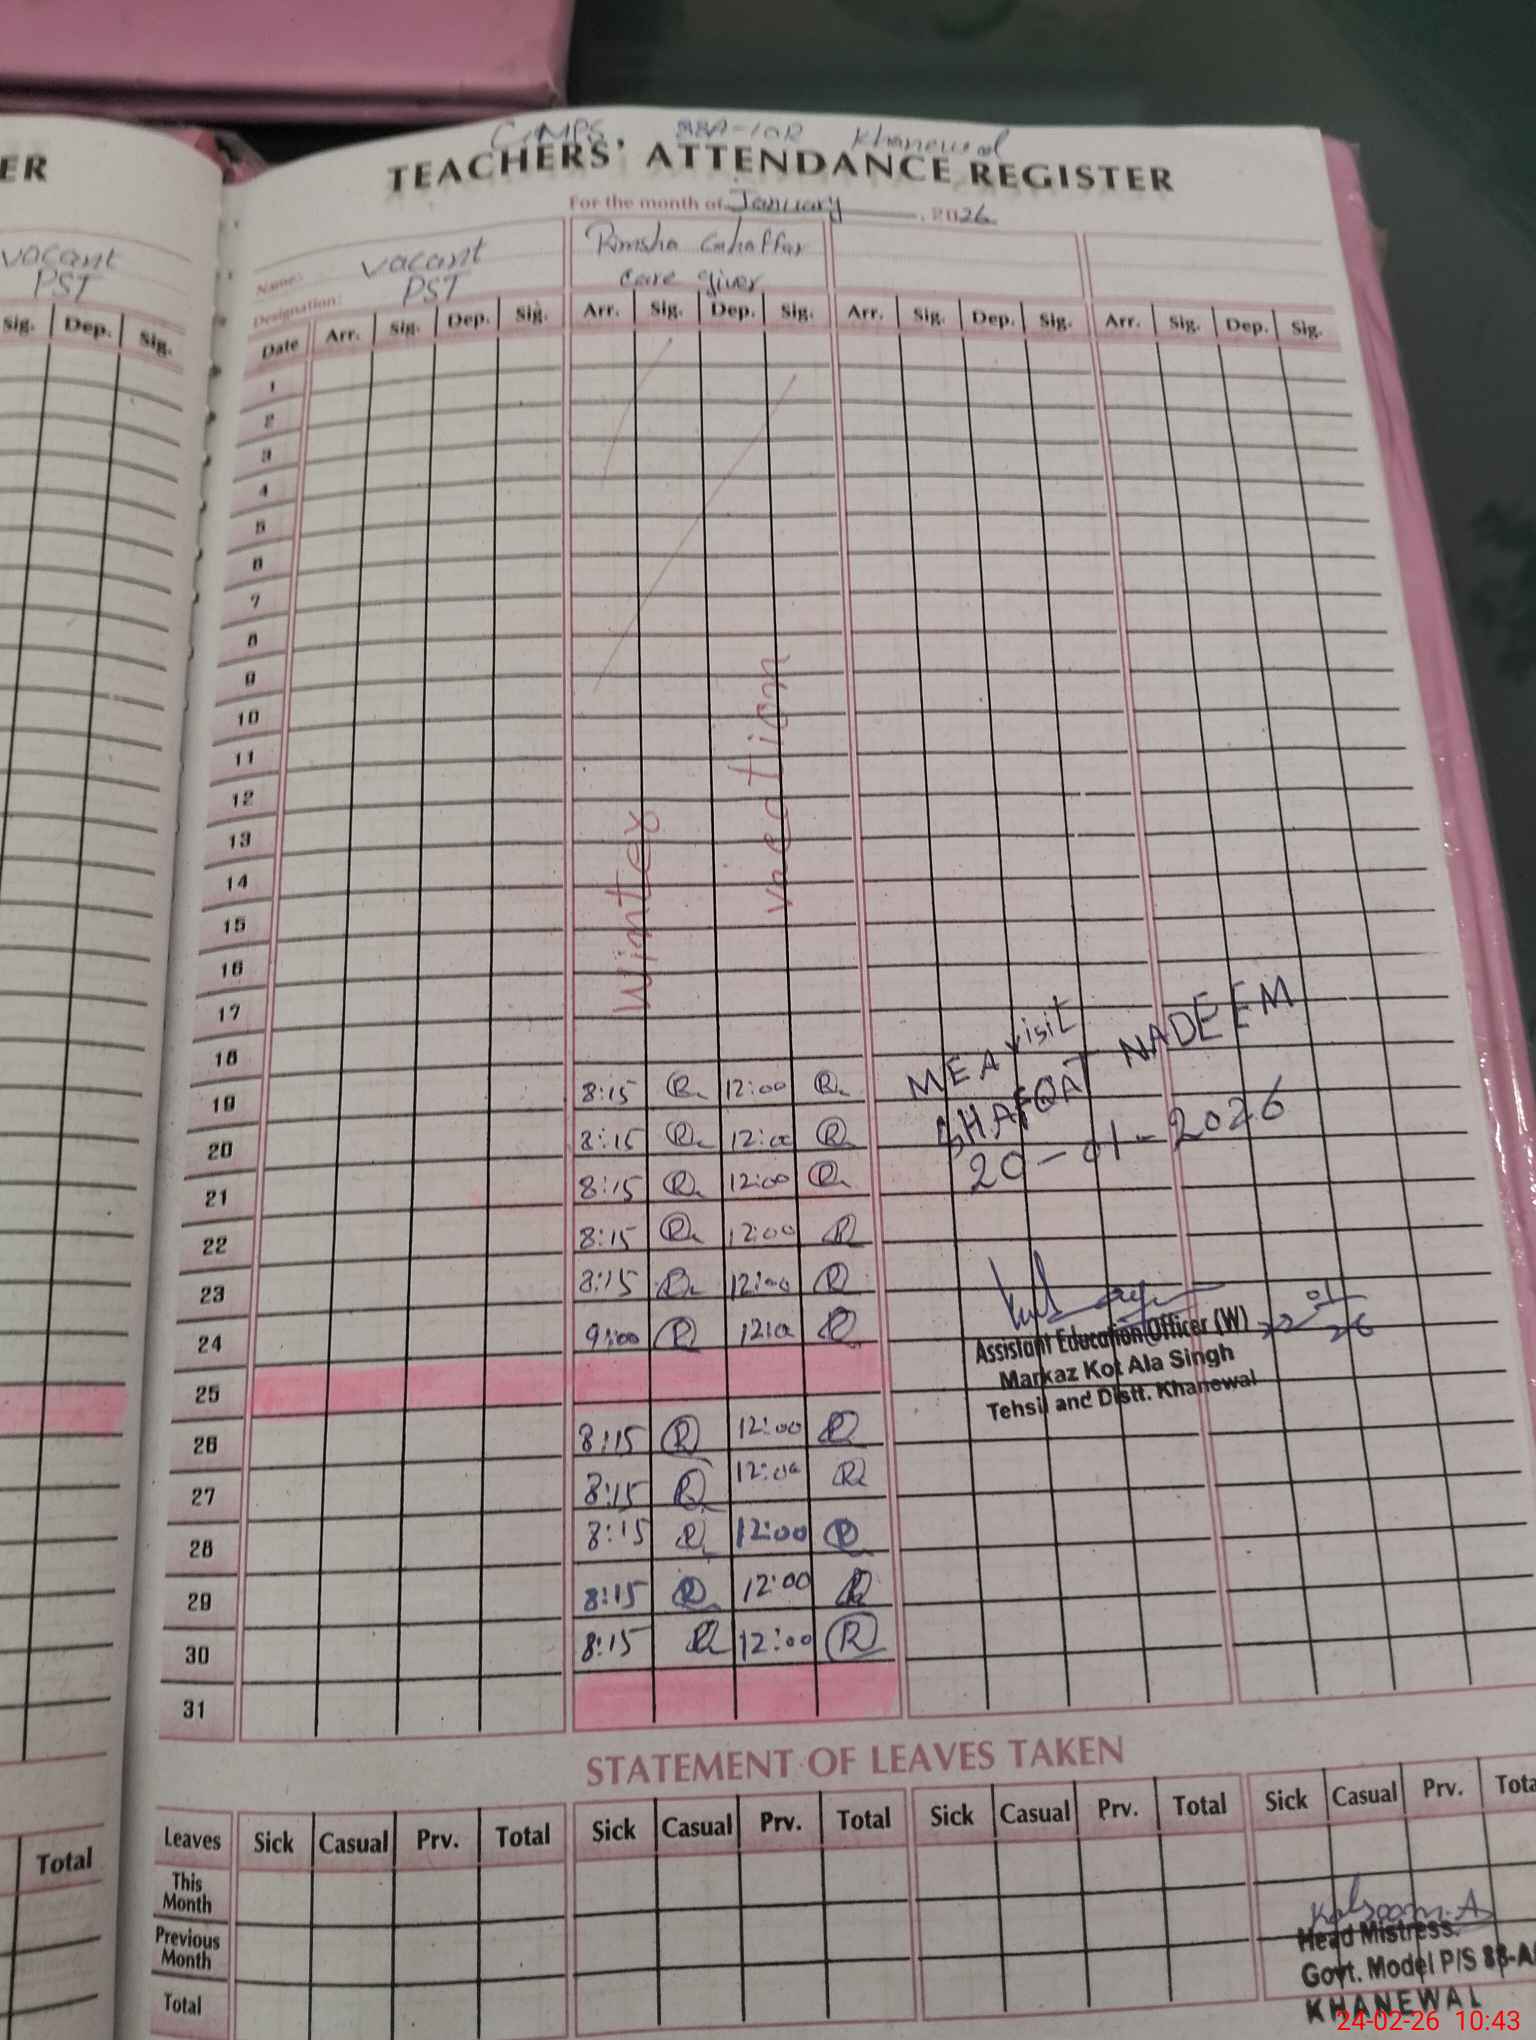 GMPS 88A-10R Khanewal
ER
TEACHERS' ATTENDANCE REGISTER
For the month of January, 2026
vacant
PST
Name: vacant Rimsha Ghaffar
Designation: PST care giver
Sig. Dep. Sig.
Date Arr. Sig. Dep. Sig. Arr. Sig. Dep. Sig. Arr. Sig. Dep. Sig. Arr. Sig. Dep. Sig.
1
2
3
4
5
6
7
8
9
10
11
12
13
14
15
16
17
18
winter
vacation
19 8:15 R 12:00 R
20 8:15 R 12:00 R
21 8:15 R 12:00 R
22 8:15 R 12:00 R
23 8:15 R 12:00 R
24 9:00 R R
25
26 8:15 R 12:00 R
27 8:15 R 12:00 R
28 8:15 R 12:00 R
29 8:15 R 12:00 R
30 8:15 R 12:00 R
31
MEA visit
SHAFQAT NADEEM
20-01-2026
Assistant Education Officer (W)
Markaz Kot Ala Singh
Tehsil and Distt. Khanewal
STATEMENT OF LEAVES TAKEN
Total
Leaves Sick Casual Prv. Total Sick Casual Prv. Total Sick Casual Prv. Total Sick Casual Prv. Tota
This Month
Previous Month
Total
Kalsoom.A
Head Mistress
Govt. Model P/S 88-A
KHANEWAL
24-02-26 10:43